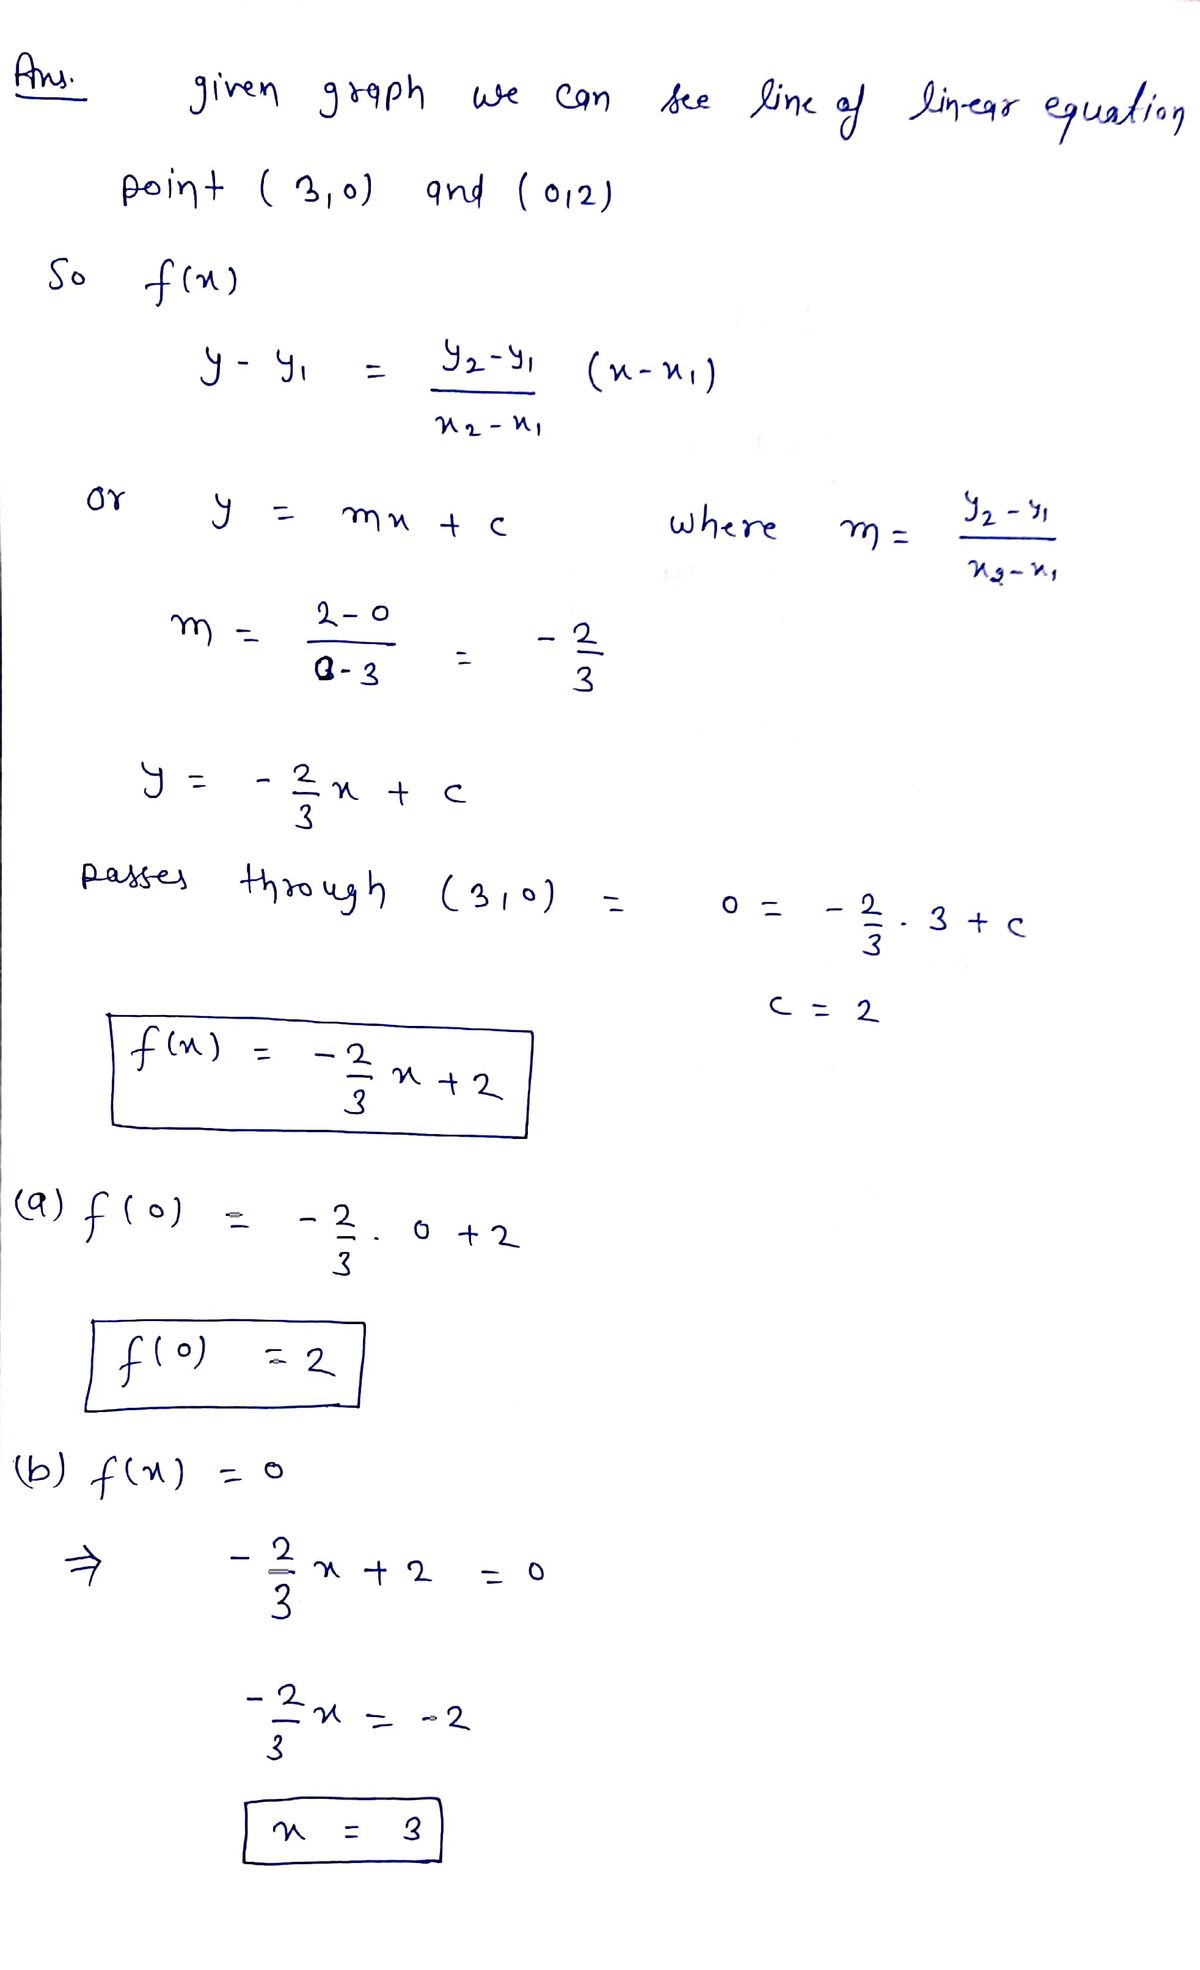 Ans. given graph we can see line of linear equation
point (3,0) and (0,2)
So f(x)
y - y₁ = (y₂-y₁)/(x₂-x₁) (x-x₁)
or y = mx + c where m = (y₂-y₁)/(x₂-x₁)
m = (2-0)/(0-3) = -2/3
y = -2/3 x + c
passes through (3,0) = 0 = -2/3 . 3 + c
c = 2
f(x) = -2/3 x + 2
(a) f(0) = -2/3 . 0 + 2
f(0) = 2
(b) f(x) = 0
⇒ -2/3 x + 2 = 0
-2/3 x = -2
x = 3